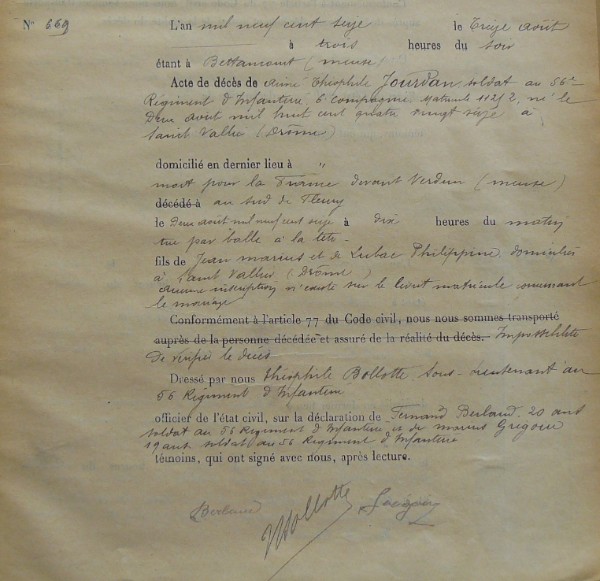 N° 669
L'an mil neuf cent seize le treize août
à trois heures du soir
étant à Bettancourt (meuse)
Acte de décès de Aimé Théophile Jourdan, soldat au 56me
Régiment d'Infanterie 6e Compagnie Matricule 11212, né le
Deux août mil huit cent quatre vingt seize à
Saint Vallier (Drôme)
domicilié en dernier lieu à "
mort pour la France devant Verdun (meuse)
décédé à au sud de Fleury
le Deux août mil neuf cent seize à dix heures du matin
tué par balle à la tête.
fils de Jean Marius et de Lubac Philippine domiciliés
à Saint Vallier (Drôme)
Aucune inscription n'existe sur le livret matricule concernant
le mariage
Conformément à l'article 77 du Code civil, nous nous sommes transporté
auprès de la personne décédée et assuré de la réalité du décès. Impossibilité
De vérifier le décès
Dressé par nous Théophile Bollotte, Sous-lieutenant au
56 Régiment d'Infanterie
officier de l'état civil, sur la déclaration de Fernand Berland, 20 ans
soldat au 56 Régiment d'Infanterie et de marius Grégoire
19 ans soldat au 56 Régiment d'Infanterie
témoins, qui ont signé avec nous, après lecture.
Berland Bollotte